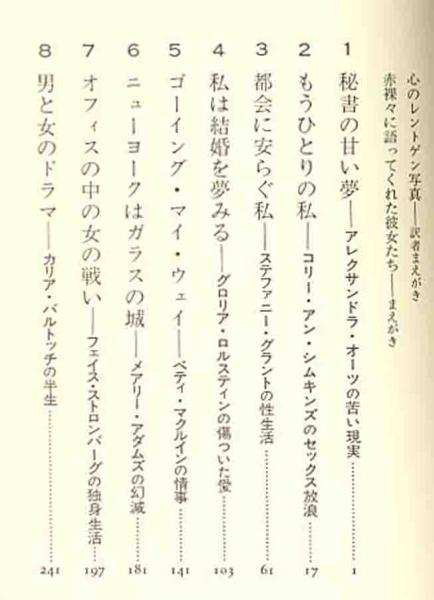 心のレントゲン写真——訳者まえがき
赤裸々に語ってくれた彼女たち——まえがき
1 秘書の甘い夢——アレクサンドラ・オーツの苦い現実……………1
2 もうひとりの私——コリー・アン・シムキンズのセックス放浪……………17
3 都会に安らぐ私——ステファニー・グラントの性生活……………61
4 私は結婚を夢みる——グロリア・ロルスティンの傷ついた愛……………103
5 ゴーイング・マイ・ウェイ——ベティ・マクルインの情事……………141
6 ニューヨークはガラスの城——メアリー・アダムズの幻滅……………181
7 オフィスの中の女の戦い——フェイス・ストロンバーグの独身生活……197
8 男と女のドラマ——カリア・バルトッチの半生……………241